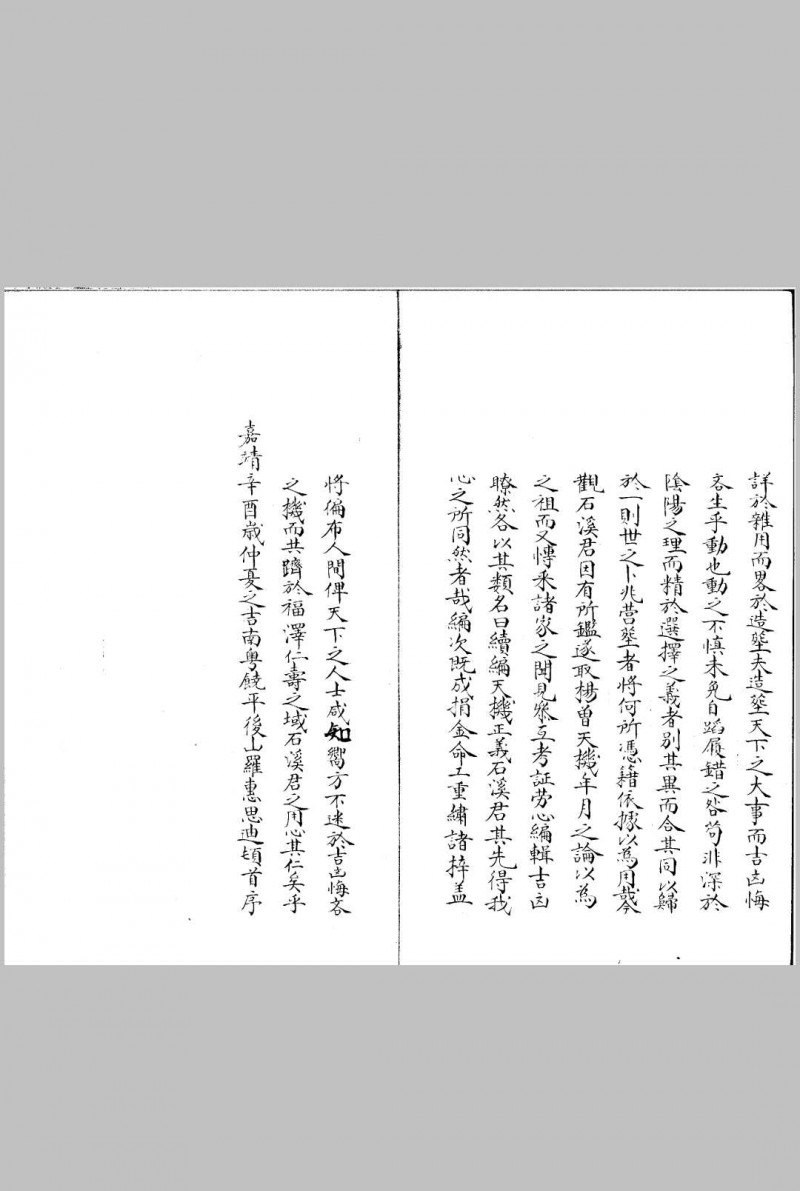 詳於雜用而畧於造塟夫造塟天下之大事而吉凶悔
吝生乎動也動之不慎未免自蹈履錯之咎茍非深於
陰陽之理而精於選擇之義者别其異而合其同以歸
於一則世之卜兆营塟者將何所憑籍依據以為用哉今
觀石溪君因有所鑑遂取楊曽天機年月之論以為
之祖而又愽采諸家之聞見叅互考証劳心編輯吉凶
瞭然各以其類名曰續編天機正義石溪君其先得我
心之所同然者哉編次既成捐金命工重繡諸梓盖
將徧布人間俾天下之人士咸知嚮方不迷於吉凶悔吝
之機而共躋於福澤仁壽之域石溪君之用心其仁矣乎
嘉靖辛酉歳仲夏之吉南粤饒平後山羅惠思迪頓首序